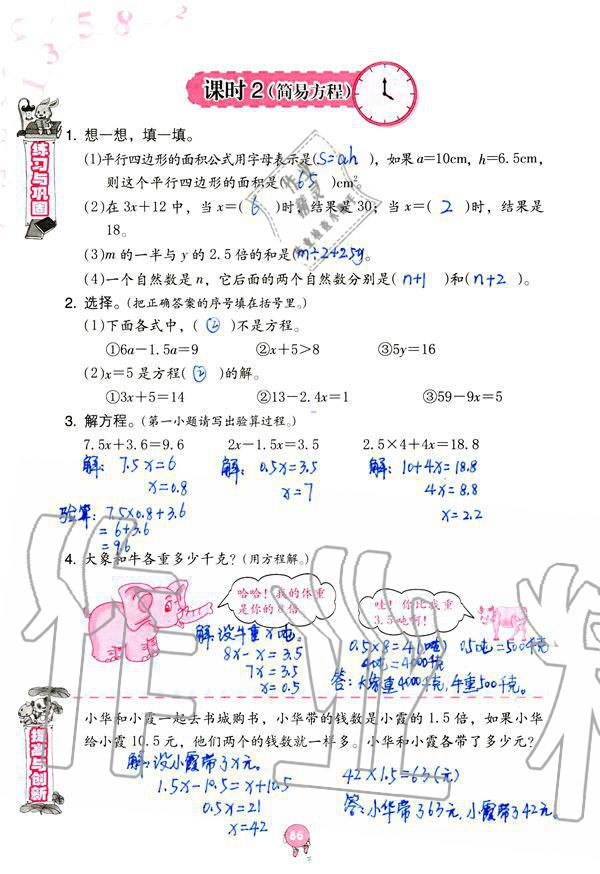 课时2(简易方程)
练习与巩固
1. 想一想，填一填。
(1)平行四边形的面积公式用字母表示是(S=ah)，如果a=10cm，h=6.5cm，
则这个平行四边形的面积是(65)cm²
(2)在3x+12中，当x=(6)时，结果是30；当x=(2)时，结果是
18。
(3)m的一半与y的2.5倍的和是(m÷2+2.5y)。
(4)一个自然数是n，它后面的两个自然数分别是(n+1)和(n+2)。
2. 选择。(把正确答案的序号填在括号里。)
(1)下面各式中，(②)不是方程。
①6a-1.5a=9 ②x+5>8 ③5y=16
(2)x=5是方程(②)的解。
①3x+5=14 ②13-2.4x=1 ③59-9x=5
3. 解方程。(第一小题请写出验算过程。)
7.5x+3.6=9.6 2x-1.5x=3.5 2.5×4+4x=18.8
解：7.5x=6 解：0.5x=3.5 解：10+4x=18.8
x=0.8 x=7 4x=8.8
x=2.2
验算：7.5×0.8+3.6
=6+3.6
=9.6
4. 大象和牛各重多少千克？(用方程解。)
哈哈！我的体重
是你的8倍
哇！你比我重
3.5吨啊！
解：设牛重x吨。
8x-x=3.5
7x=3.5
x=0.5
0.5×8=4(吨) 0.5吨=500千克
4吨=4000千克
答：大象重4000千克，牛重500千克。
提高与创新
小华和小霞一起去书城购书，小华带的钱数是小霞的1.5倍，如果小华
给小霞10.5元，他们两个的钱数就一样多。小华和小霞各带了多少元？
解：设小霞带了x元。
1.5x-10.5=x+10.5
0.5x=21
x=42
42×1.5=63(元)
答：小华带了63元，小霞带了42元。
86
作业精